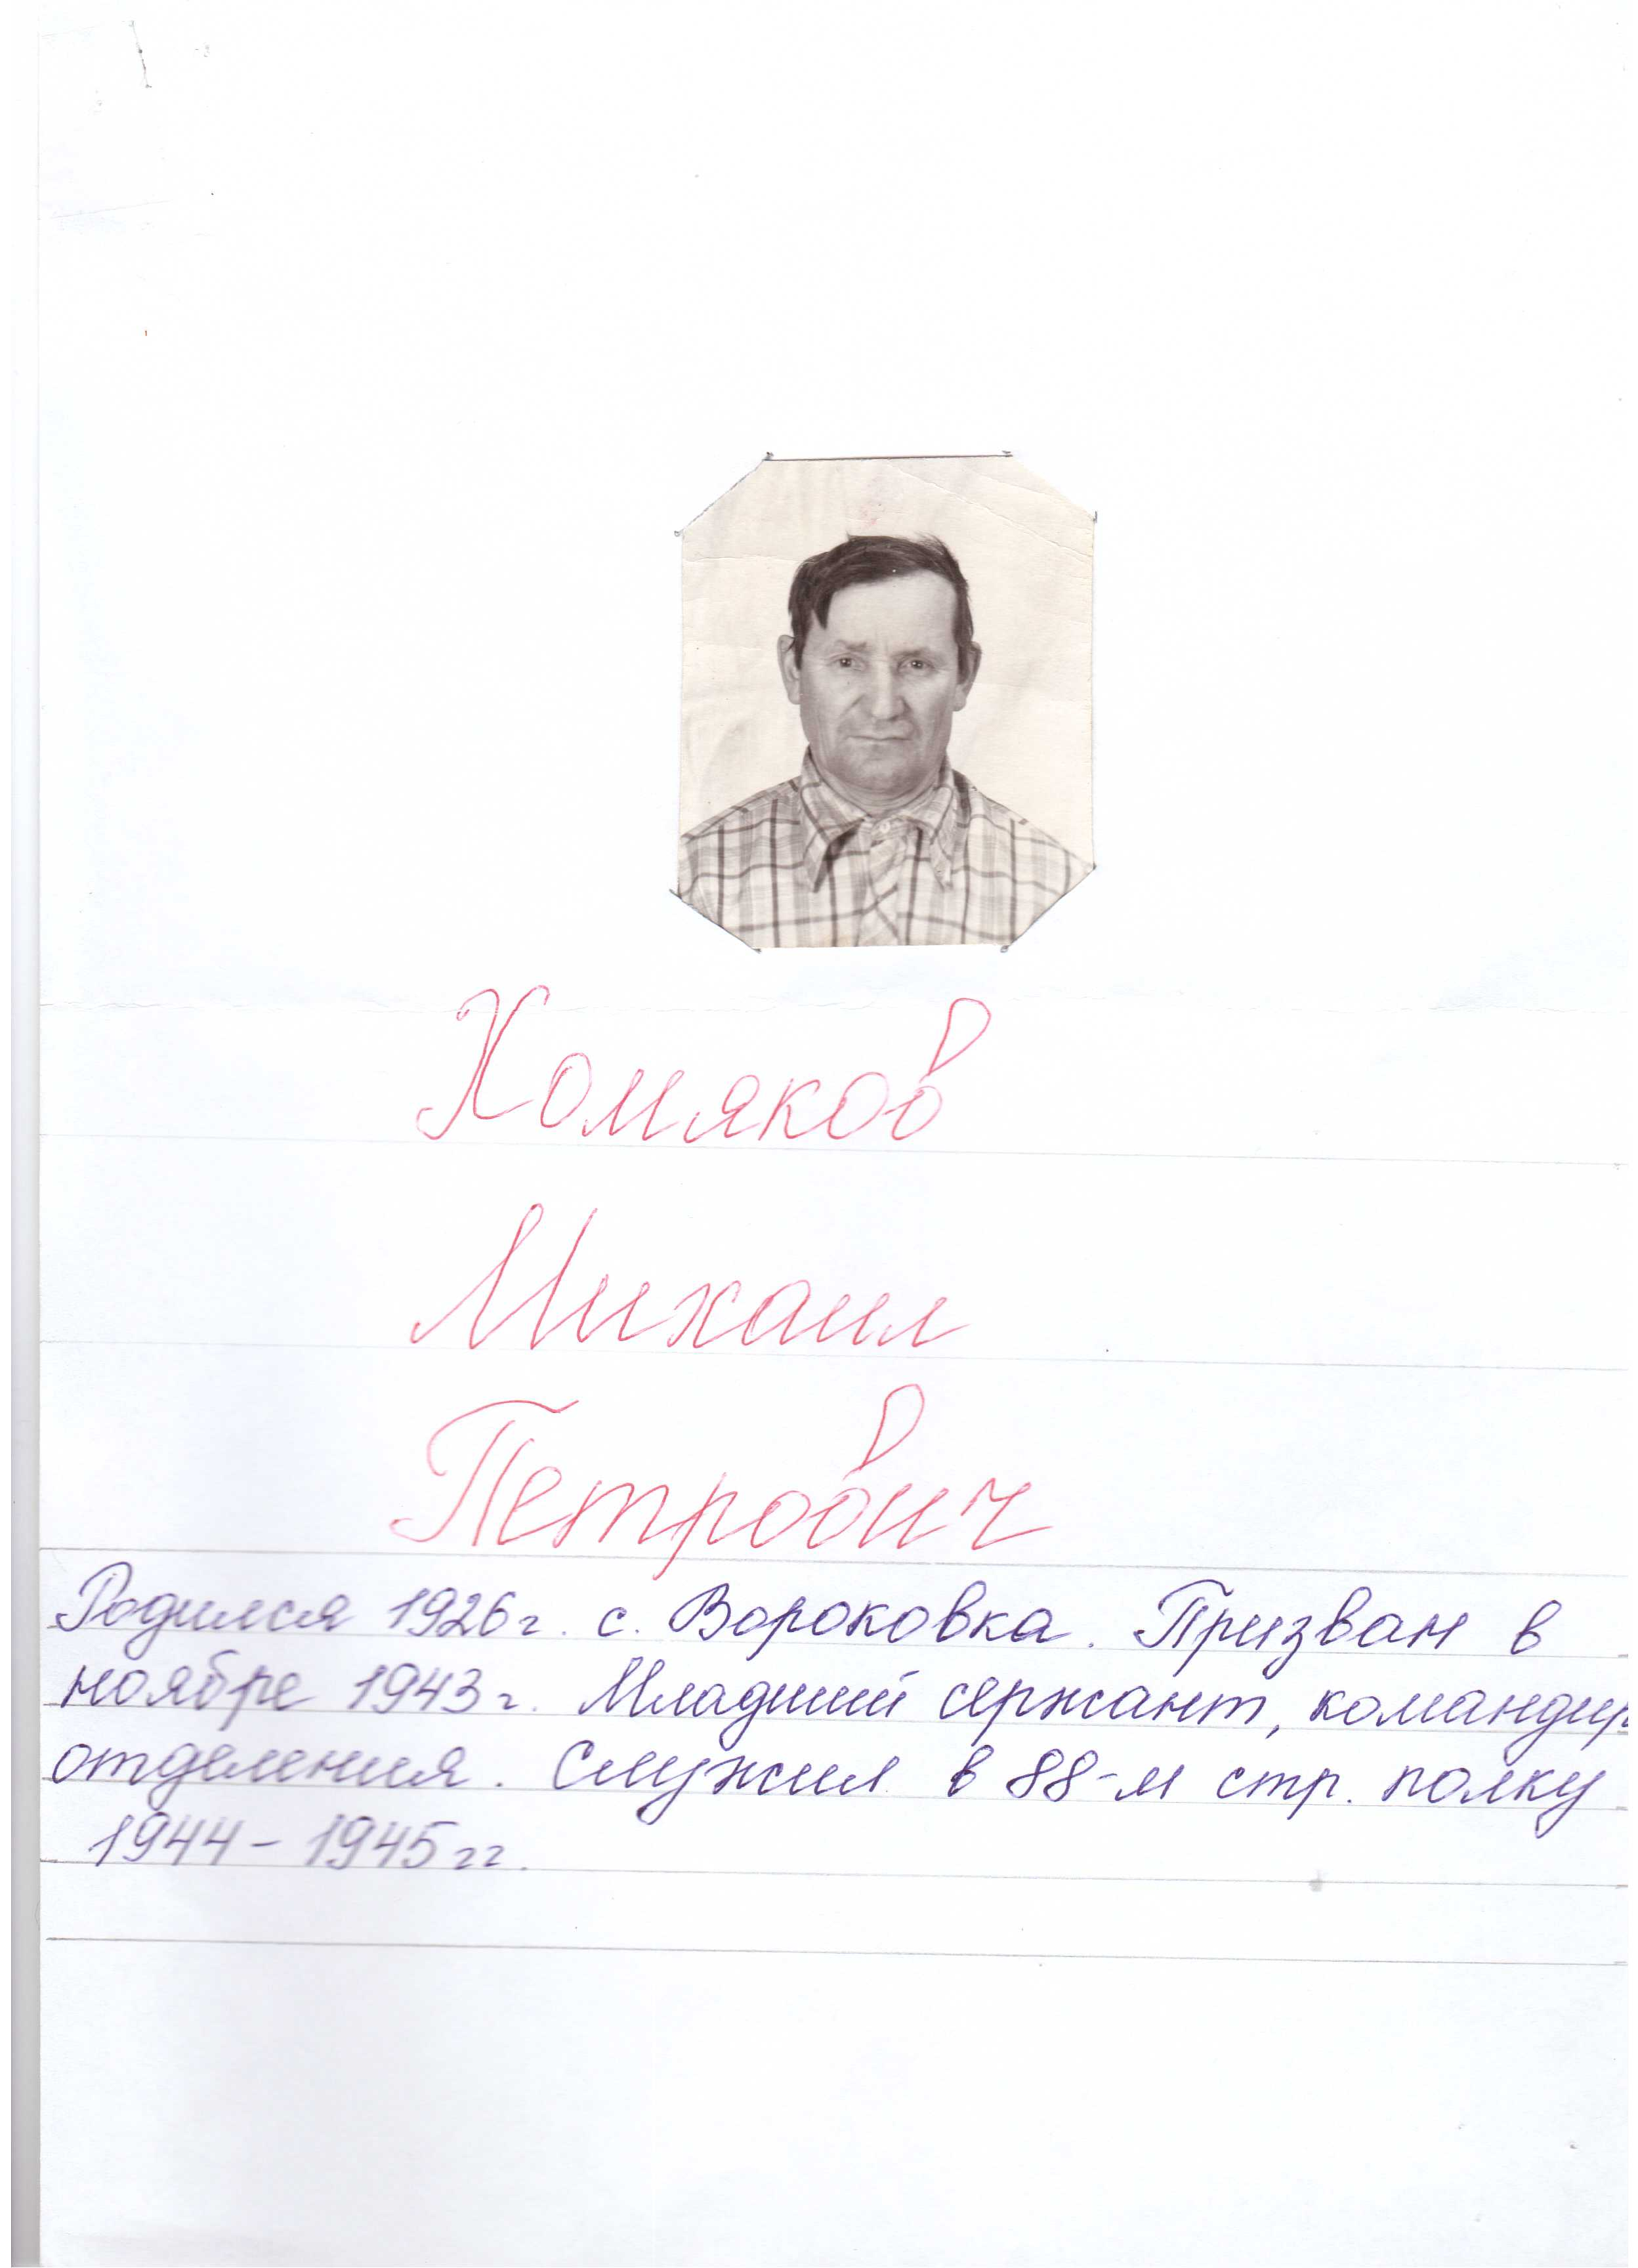 Хомяков
Михаил
Петрович
Родился 1926 г. с. Вороковка. Призван в
ноябре 1943 г. Младший сержант, командир
отделения. Служил в 88-м стр. полку
1944 - 1945 гг.